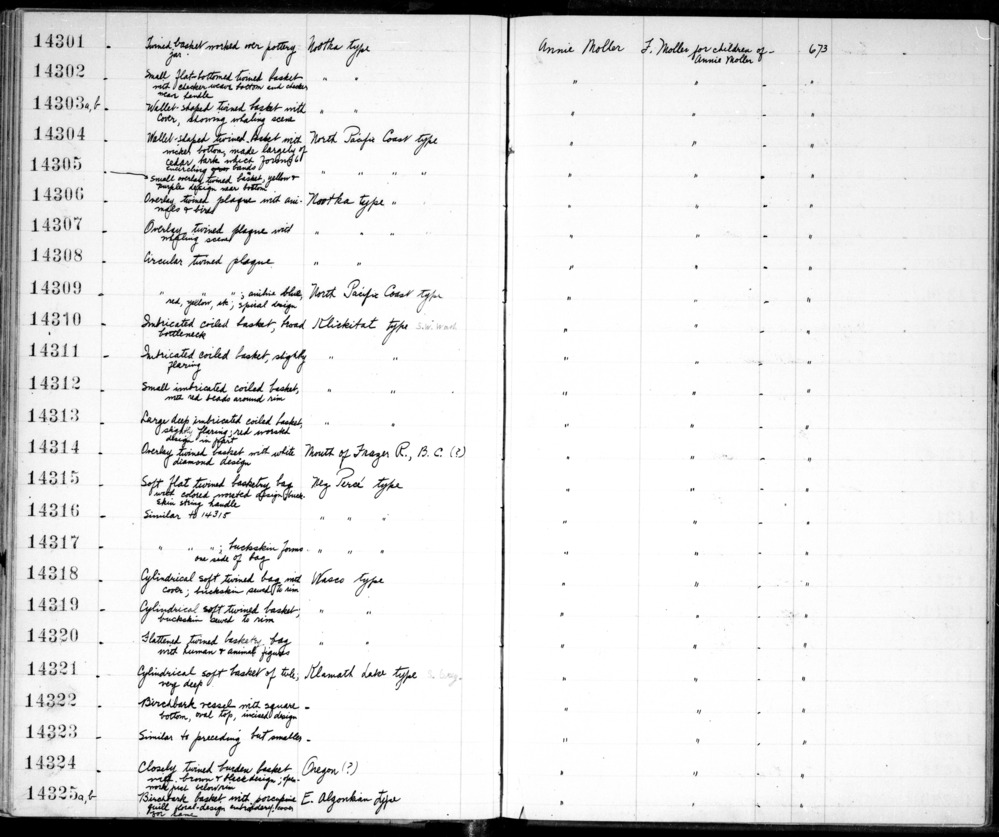 14301 - Twined basket worked over pottery Nootka type Annie Moller F. Moller for children of - 673
jar Annie Moller
14302 - Small flat-bottomed twined basket " " " " - "
with checker weave bottom and checker
near handle
14303a,b - Wallet-shaped twined basket with " " " " - "
cover, showing whaling scene
14304 - Wallet-shaped twined basket with North Pacific Coast type " " - "
wicker bottom, made largely of
cedar bark which forms 6
encircling bands
14305 - small overlay twined basket, yellow + " " " " " " - "
purple design near bottom
14306 - Overlay twined plaque with ani- Nootka type " " " - "
mals & bird
14307 - Overlay twined plaque with " " " " " - "
whaling scene
14308 - Circular twined plaque " " " " - "
14309 - " " " ; aniline blue, North Pacific Coast type " " - "
red, yellow, etc; spiral design
14310 - Imbricated coiled basket, broad Klickitat type S.W. Wash " " - "
bottleneck
14311 - Imbricated coiled basket, slightly " " " " - "
flaring
14312 - Small imbricated coiled basket, " " " " - "
with red beads around rim
14313 - Large deep imbricated coiled basket, " " " " - "
slightly flaring; red worsted
design in part
14314 - Overlay twined basket with white Mouth of Frazer R., B.C. (?) " " - "
diamond design
14315 - Soft flat twined basketry bag Nez Percé type " " - "
with colored worsted design; buck-
skin string handle
14316 - Similar to 14315 " " " " " - "
14317 - " " " ; buckskin forms " " " " " - "
one side of bag
14318 - Cylindrical soft twined bag with Wasco type " " - "
cover; buckskin sewed to rim
14319 - Cylindrical soft twined basket, " " " " - "
buckskin sewed to rim
14320 - Flattened twined basketry bag " " " " - "
with human & animal figures
14321 - Cylindrical soft basket of tule; Klamath Lake type " " - "
very deep
14322 - Birchbark vessel with square - " " - "
bottom, oval top, incised design
14323 - Similar to preceding but smaller - " " - "
14324 - Closely twined burden basket Oregon (?) " " - "
with brown & black design; open-
work just below rim
14325a,b - Birchbark basket with porcupine E. Algonkian type " " - "
quill floral-design embroidery; cover